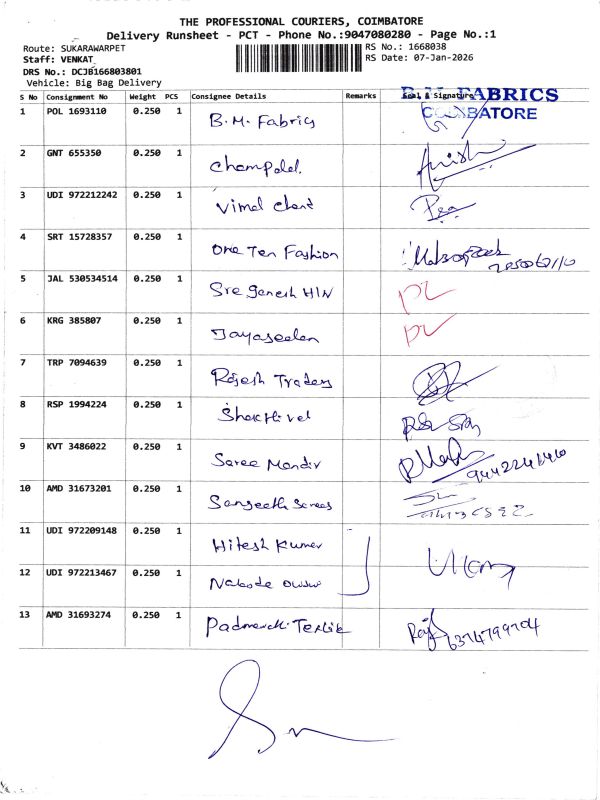 THE PROFESSIONAL COURIERS, COIMBATORE
Delivery Runsheet - PCT - Phone No.:9047080280 - Page No.:1
Route: SUKARAWARPET
Staff: VENKAT
DRS No.: DCJB166803801
Vehicle: Big Bag Delivery
RS No.: 1668038
RS Date: 07-Jan-2026
S No Consignment No Weight PCS Consignee Details Remarks Seal & Signature
FABRICS
COIMBATORE
1 POL 1693110 0.250 1 B.M. Fabrics
2 GNT 655350 0.250 1 Champalal. Anish
3 UDI 972212242 0.250 1 Vimal Chand
4 SRT 15728357 0.250 1 One Ten Fashion
5 JAL 530534514 0.250 1 Sre Ganesh H/W DL
6 KRG 385807 0.250 1 Jayaseelan DL
7 TRP 7094639 0.250 1 Rajesh Traders
8 RSP 1994224 0.250 1 Shakthivel
9 KVT 3486022 0.250 1 Saree Mandir
10 AMD 31673201 0.250 1 Sangeetha Sarees
11 UDI 972209148 0.250 1 Hitesh Kumar
12 UDI 972213467 0.250 1 Nakode
13 AMD 31693274 0.250 1 Raj 6374799704